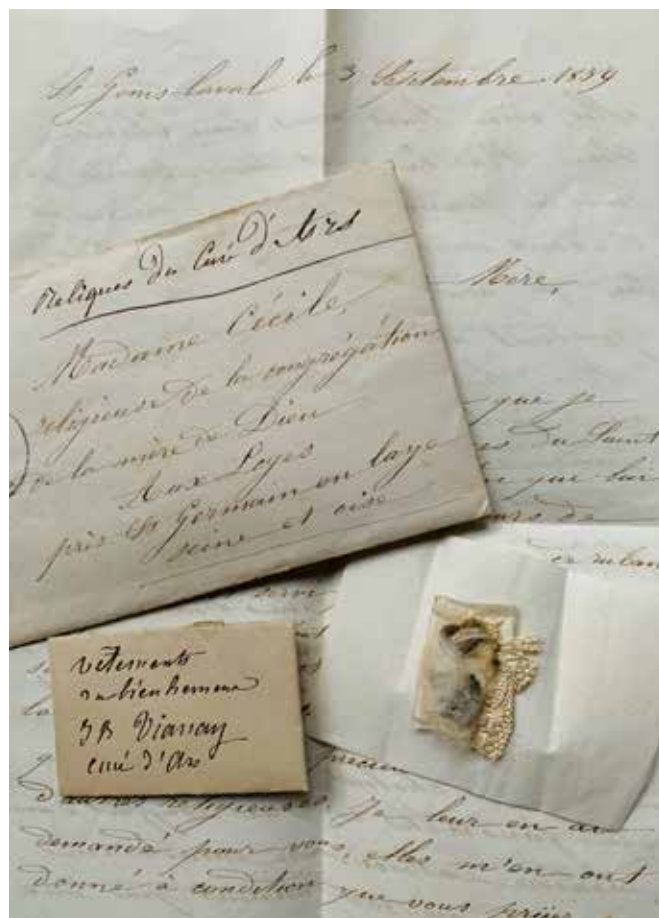 St Genis-Laval le 3 Septembre 1859
Reliques du Curé d'Ars
Madame Cécile,
religieuse de la congrégation
de la mère de Dieu
Aux Loges
près St Germain en laye
seine et oise
Mere,
que je
du Saint
que lui
de
de ruban
vêtements
du bienheureux
JB Vianay
curé d'Ars
d'autres religieuses. Je leur en ai
demandé pour vous, elles m'en ont
donné à condition que vous